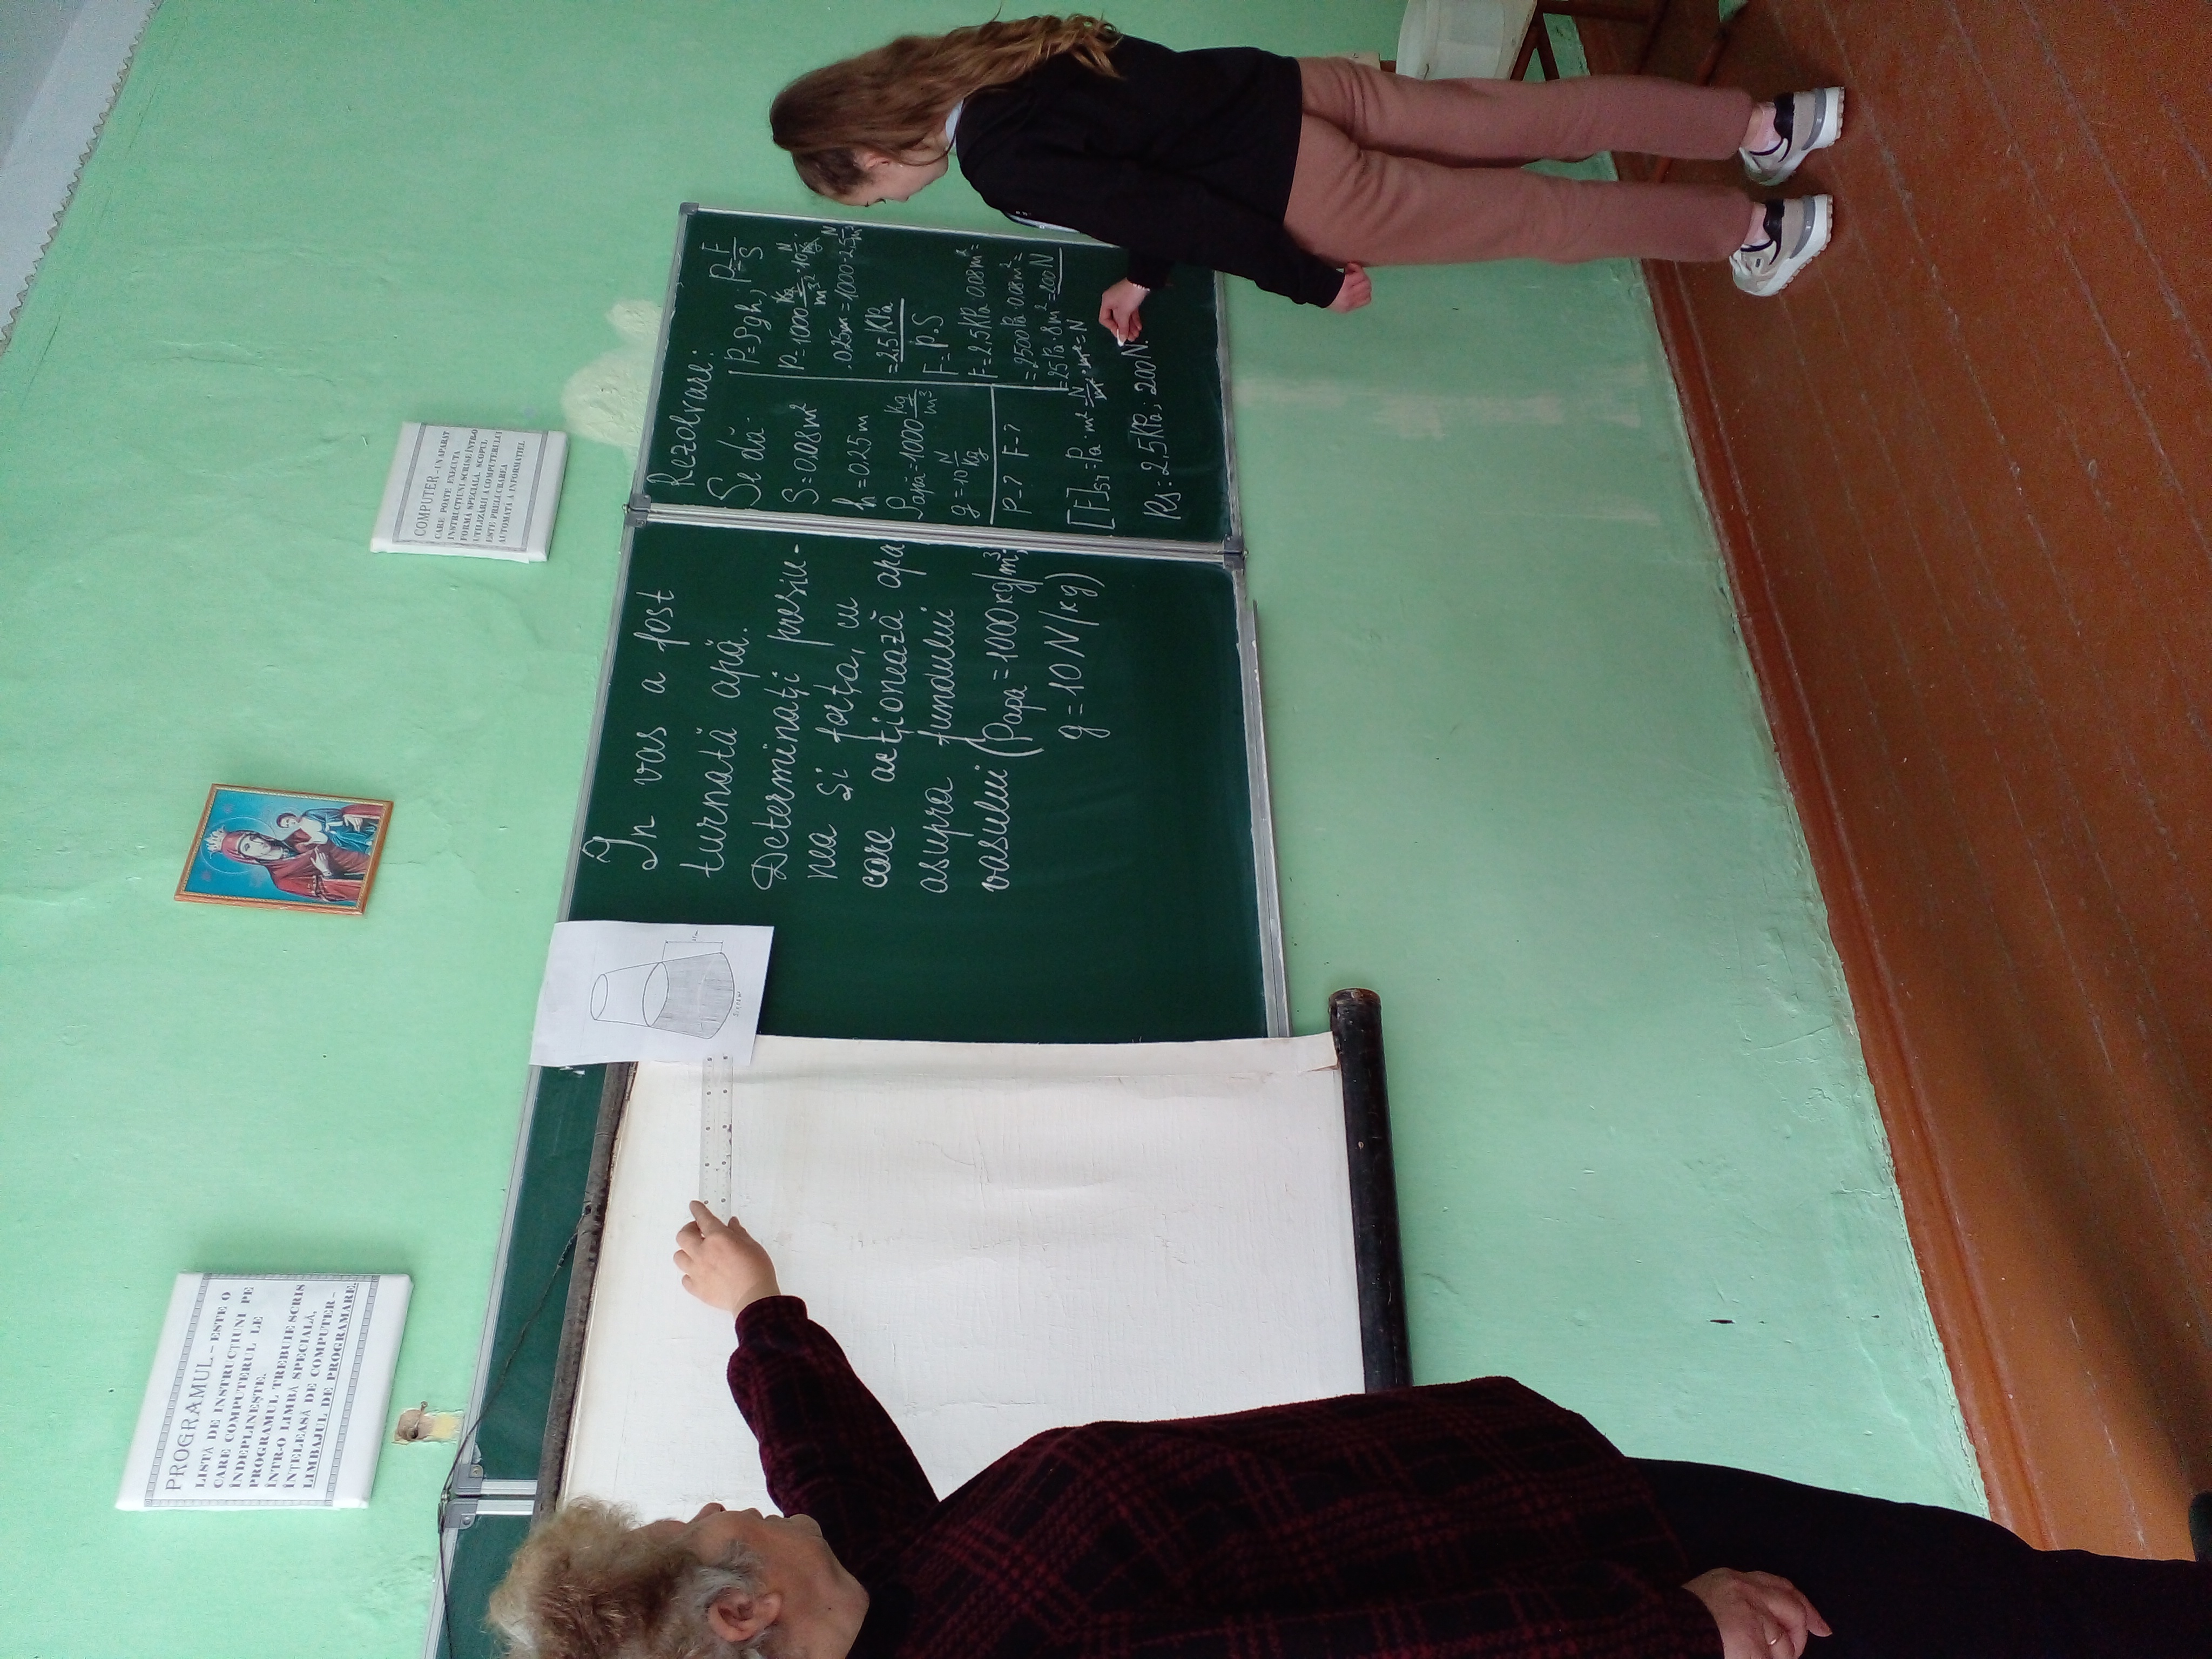 PROGRAMUL – ESTE O
LISTĂ DE INSTRUCŢIUNI PE
CARE COMPUTERUL LE
ÎNDEPLINEŞTE.
PROGRAMUL TREBUIE SCRIS
ÎNTR-O LIMBĂ SPECIALĂ,
ÎNŢELEASĂ DE COMPUTER –
LIMBAJUL DE PROGRAMARE.
COMPUTER – UN APARAT
CARE POATE EXECUTA
INSTRUCŢIUNI SCRISE ÎNTR-O
FORMĂ SPECIALĂ. SCOPUL
UTILIZĂRII A COMPUTERULUI
ESTE PRELUCRAREA
AUTOMATĂ A INFORMAŢIEI.
În vas a fost
turnată apă.
Determinaţi presiu-
nea şi forţa, cu
care acţionează apa
asupra fundului
vasului (ρapa = 1000 kg/m³;
g = 10 N/kg)
Rezolvare:
Se dă:
S = 0,08 m²
h = 0,25 m
ρapă = 1000 kg/m³
g = 10 N/kg
P = ? F = ?
P = ρgh; P = F/S
P = 1000 kg/m³ · 10 N/kg ·
· 0,25 m = 1000 · 2,5 N/m²
= 2,5 KPa
F = P · S
F = 2,5 KPa · 0,08 m² =
= 2500 Pa · 0,08 m² =
= 25 Pa · 8 m² = 200 N
[F]SI = Pa · m² = N/m² · m² = N
Rs: 2,5 KPa; 200 N.